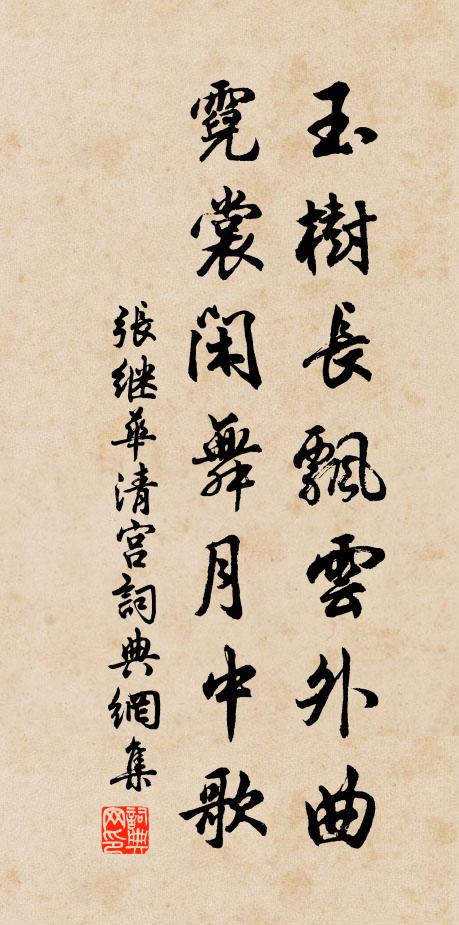 玉樹長飄雲外曲
霓裳閑舞月中歌
張継華清宮詞典網集
詞典网印